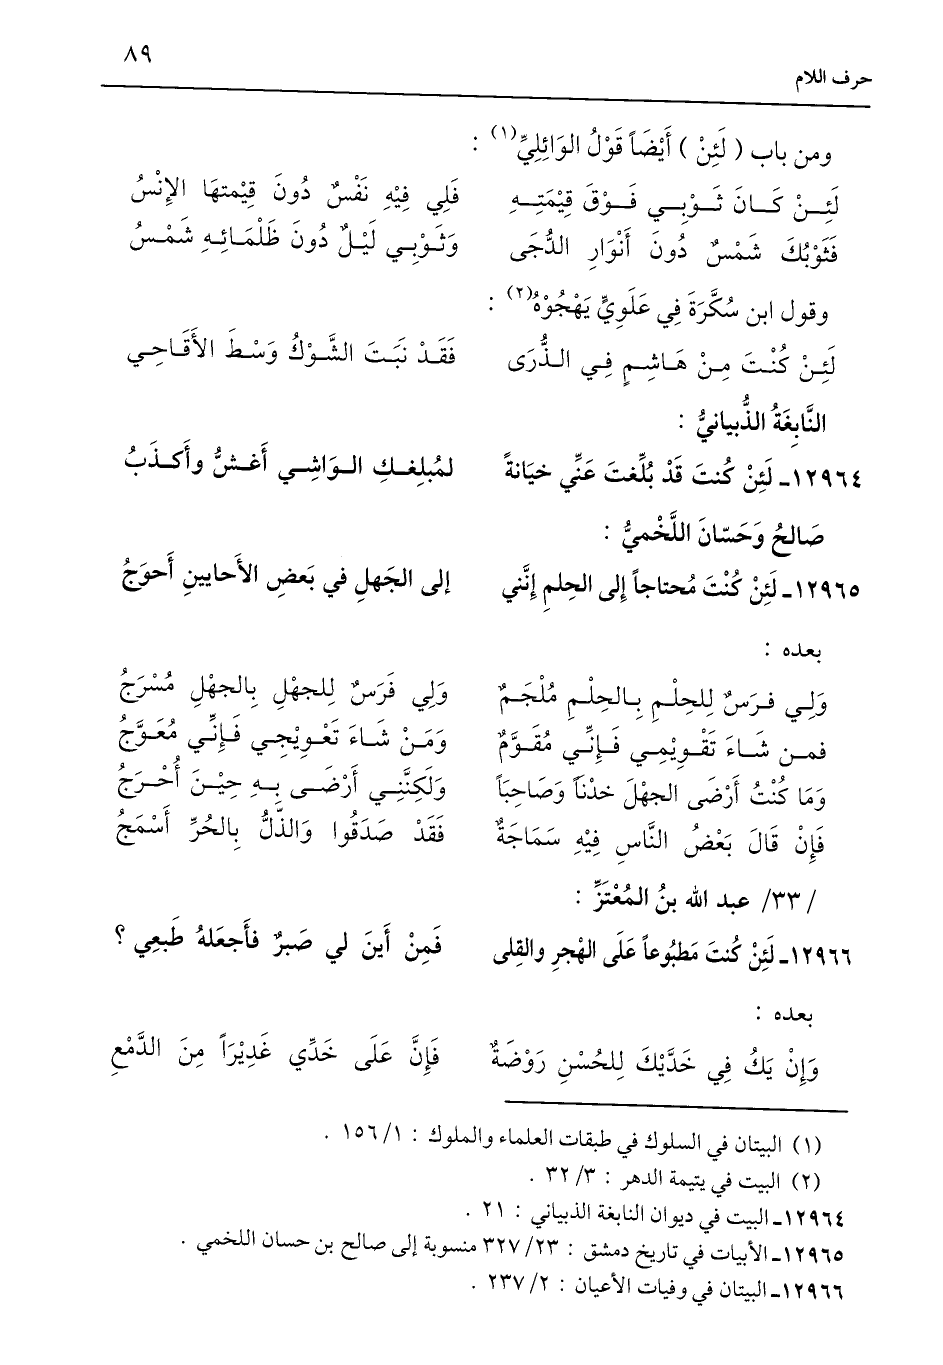 ٨٩
حرف اللام
ومن باب ( لَئِنْ ) أَيْضَاً قَوْلُ الوَائِلِيِّ(١) :
لَئِــنْ كَــانَ ثَــوْبِــي فَــوْقَ قِيْمَتِــهِ فَلِي فِيْهِ نَفْسٌ دُونَ قِيْمتِهَا الإِنْسُ
فَثَوْبُكَ شَمْسٌ دُونَ أَنْوَارِ الدُّجَى وَثَــوْبِي لَيْــلٌ دُونَ ظَلْمَائِــهِ شَمْــسُ
وقول ابن سُكَّرَةَ فِي عَلَوِيٍّ يَهْجُوْهُ(٢) :
لَئِــنْ كُنْــتَ مِــنْ هَــاشِــمٍ فِــي الــذُّرَى فَقَــدْ نَبَــتَ الشَّــوْكُ وَسْــطَ الأَقَــاحِــي
النَّابِغَةُ الذُّبيانيُّ :
١٢٩٦٤ـ لَئِنْ كُنتَ قَدْ بُلِّغتَ عَنِّي خيَانةً لمُبلِغــكِ الــواشِــي أَغــشُّ وأَكــذَبُ
صَالحُ وَحَسّانَ اللَّخْميُّ :
١٢٩٦٥ـ لَئِنْ كُنْتَ مُحتاجاً إلى الحِلمِ إنَّني إلى الجَهلِ في بَعضِ الأحايينِ أَحوَجُ
بعده :
وَلِــي فــرَسٌ لِلحِلْــمِ بِــالحِلْــمِ مُلْجَــمٌ وَلِي فَرَسٌ لِلجهْلِ بِالجهْلِ مُسْرَجُ
فمــن شَــاءَ تَقْــوِيْمِــي فَــإنِّــي مُقَــوَّمٌ وَمَــنْ شَــاءَ تَعْــوِيْجِــي فَــإنِّــي مُعَــوَّجُ
وَمَا كُنْتُ أَرْضَى الجهْلَ خدْنَاً وَصَاحِبَاً وَلَكِنَّنِــي أَرْضَــى بِــهِ حِيْــنَ أُحْــرَجُ
فَإنْ قَالَ بَعْضُ النَّاسِ فِيْهِ سَمَاجَةٌ فَقَدْ صَدَقُوا وَالذَّلُّ بِالحُرِّ أَسْمَجُ
/ ٣٣/ عبد الله بنُ المُعْتَزِّ :
١٢٩٦٦ـ لَئِنْ كُنتَ مَطبُوعاً عَلَى الهْجرِ والقِلى فَمِنْ أَينَ لي صَبرٌ فأَجعَلهُ طَبعِي ؟
بعده :
وَإنْ يَكُ فِي خَدَّيْكَ لِلحُسْنِ رَوْضَةٌ فَإنَّ عَلَى خَدِّي غَدِيْرَاً مِنَ الدَّمْعِ
(١) البيتان في السلوك في طبقات العلماء والملوك : ١/ ١٥٦ .
(٢) البيت في يتيمة الدهر : ٣/ ٣٢ .
١٢٩٦٤ـ البيت في ديوان النابغة الذبياني : ٢١ .
١٢٩٦٥ـ الأبيات في تاريخ دمشق : ٢٣/ ٣٢٧ منسوبة إلى صالح بن حسان اللخمي .
١٢٩٦٦ـ البيتان في وفيات الأعيان : ٢/ ٢٣٧ .